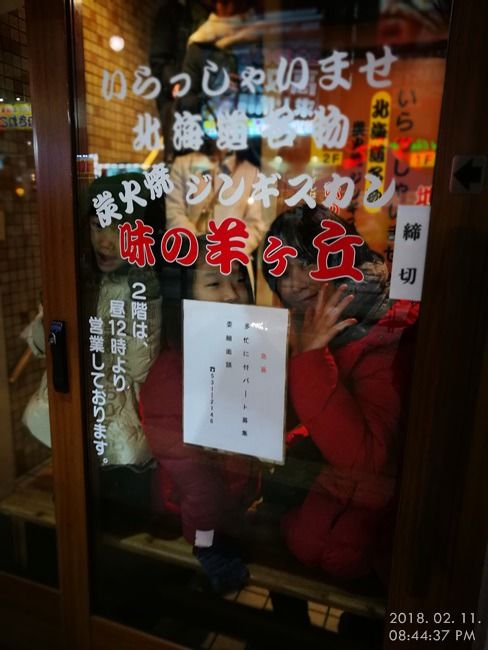 いらっしゃいませ
北海道名物
炭火焼 ジンギスカン
味の羊ヶ丘
2階は、
昼12時より
営業しております。
急募
多忙に付パート募集
委細面談
☎531-2146
締切
北海道名物
2F
1F
2018. 02. 11.
08:44:37 PM